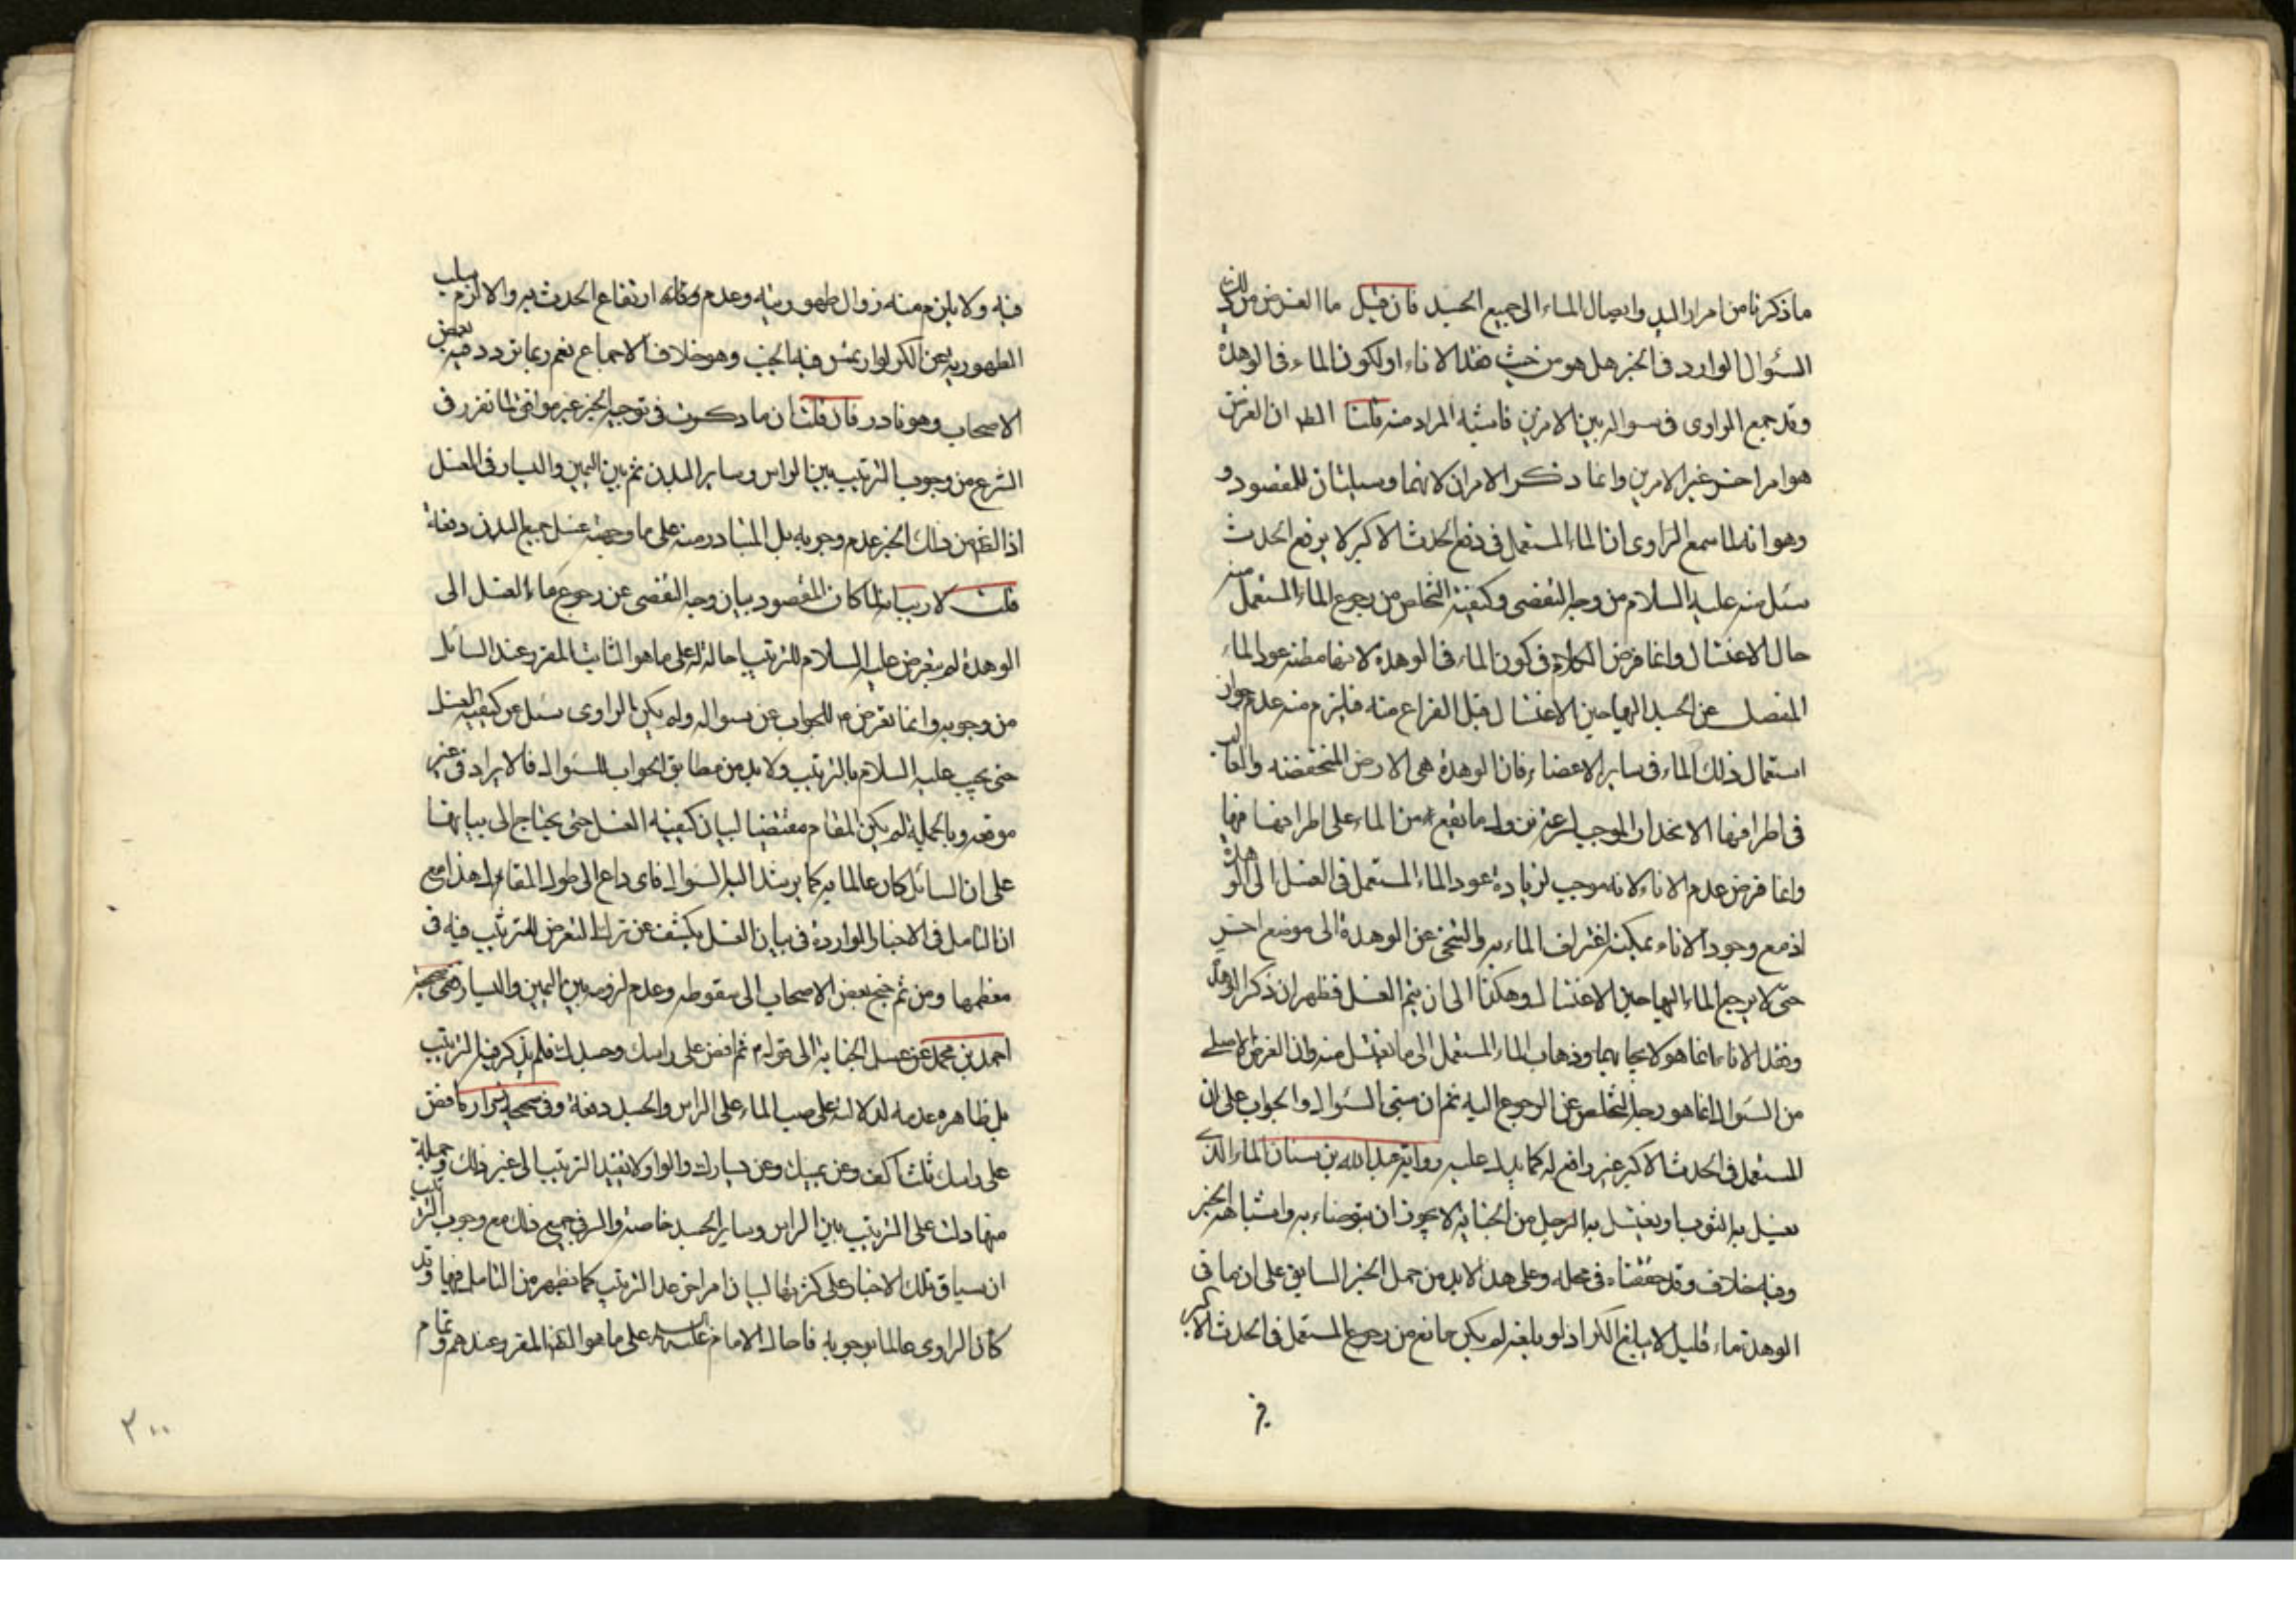 ما ذكرنا من امرار اليد وايصال الماء الى جميع الجسد فان قيل ما الغرض من
السؤال الوارد فى الخبر هل هو من حيث فقد الاناء او لكون الماء فى الوهدة
وقد جمع الراوى فى سواله بين الامرين فاشتبه المراد منه قلنا الظ ان الغرض
هو امر اخر غير الامرين وانما ذكر الامران لانهما وسيلتان للمقصود و
وهو انه لما سمع الراوى ان الماء المستعمل فى رفع الحدث الاكبر لا يرفع الحدث
سئل منه عليه السلام من وجه التفصى وكيفية التخلص من رجوع الماء المستعمل منه
حال الاغتسال وانما فرض الكلام فى كون الماء فى الوهدة لانها مظنه عود الماء
المنفصل عن الجسد اليها حين الاغتسال قبل الفراغ منه فيلزم منه عدم جواز
استعمال ذلك الماء فى ساير الاعضاء فان الوهدة هى الارض المنخفضه والغالب
فى اطرافها الانحدار الموجب لرجوع ما يقع من الماء على اطرافها فيها
وانما فرض عدم الاناء لانه موجب لزيادة عود الماء المستعمل فى الغسل الى الوهدة
اذ مع وجود الاناء يمكنه اغتراف الماء به والتنحى عن الوهدة الى موضع اخر
حتى لا يرجع الماء اليها حين الاغتسال وهكذا الى ان يتم الغسل فظهر ان ذكر الوهدة
وفقد الاناء انما هو لايجابهما وذهاب الماء المستعمل الى ما يغتسل منه وان الغرض الاصلى
من السؤال انما هو وجه التخلص عن الرجوع اليه ثم ان مبنى السؤال والجواب على ان
المستعمل فى الحدث الاكبر غير رافع له كما يدل عليه رواية عبدالله بن سنان الماء الذى
يغسل به الثوب او يغتسل به الرجل من الجنابة لا يجوز ان يتوضاء به واشباهه الخبر
وفيه خلاف وقد حققناه فى محله وعلى هذا لابد من حمل الخبر السابق على ان ما فى
الوهدة ماء قليل لا يبلغ الكر اذ لو بلغه لم يكن مانع من رجوع المستعمل فى الحدث الاكبر
فيه ولا يلزم منه زوال طهوريته وعدم ارتفاع الحدث به والا لزم سلب
الطهورية عن الكر لو ارتمس فيه الجنب وهو خلاف الاجماع نعم ربما تردد فيه بعض
الاصحاب وهو نادر فان قلت ان ما ذكرت فى توجيه الخبر غير موافق لما تقرر فى
الشرع من وجوب الترتيب بين الراس وساير البدن ثم بين اليمين واليسار فى الغسل
اذ الظ من ذلك الخبر عدم وجوبه بل المتبادر منه على ما وجهته غسل جميع البدن دفعة
قلت لا ريب انه لما كان المقصود بيان وجه التفصى عن رجوع ماء الغسل الى
الوهدة لم يتعرض عليه السلام للترتيب احالة له على ما هو الثابت المقرر عند السائل
من وجوبه وانما تعرض م للجواب عن سواله ولم يكن الراوى سئل عن كيفية الغسل
حتى يجيب عليه السلام بالترتيب ولا بد من مطابق الجواب للسئوال فالايراد فى غير
موقعه وبالجملة لم يكن المقام مقتضيا لبيان كيفية الغسل حتى يحتاج الى بيانها
على ان السائل كان عالما به كما يرشد اليه السؤال فاى داع الى طول المقام هذا مع
ان التامل فى الاخبار الواردة فى بيان الغسل يكشف عن ترك التعرض للترتيب فيه فى
معظمها ومن ثم جنح بعض الاصحاب الى سقوطه وعدم لزومه بين اليمين واليسار ففى صحيحة
احمد بن محمد عن غسل الجنابة الى قوله م ثم افض على راسك وجسدك فلم يذكر فيه الترتيب
بل ظاهره عدمه لدلالته على صب الماء على الراس والجسد دفعة وفى صحيحة زرارة افض
على راسك ثلث اكف وعن يمينك وعن يسارك والواو لا يفيد الترتيب الى غير ذلك وجملة
منها دلت على الترتيب بين الراس وساير الجسد خاصة والسر فى جميع ذلك مع وجوب الترتيب
ان سياق تلك الاخبار على كثرتها لبيان امر اخر عدا الترتيب كما يظهر من التامل فيها وقد
كان الراوى عالما بوجوبه فاحال الامام عليه السلم على ما هو الظ المقرر عندهم وتمام
٢٠٠